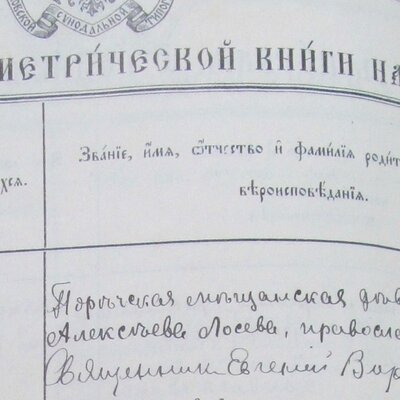 СУНОДАЛЬНОЙ
МЕТРИ́ЧЕСКОЙ КНИ́ГИ НА
Зва́нїе, и҆́мѧ, ѻ҆́тчество и҆ фами́лїѧ роди́т
хсѧ.
вѣроисповѣ́данїѧ.
мѣщанская
Алексѣева Лосева, правосла
Священник Евгений Вор